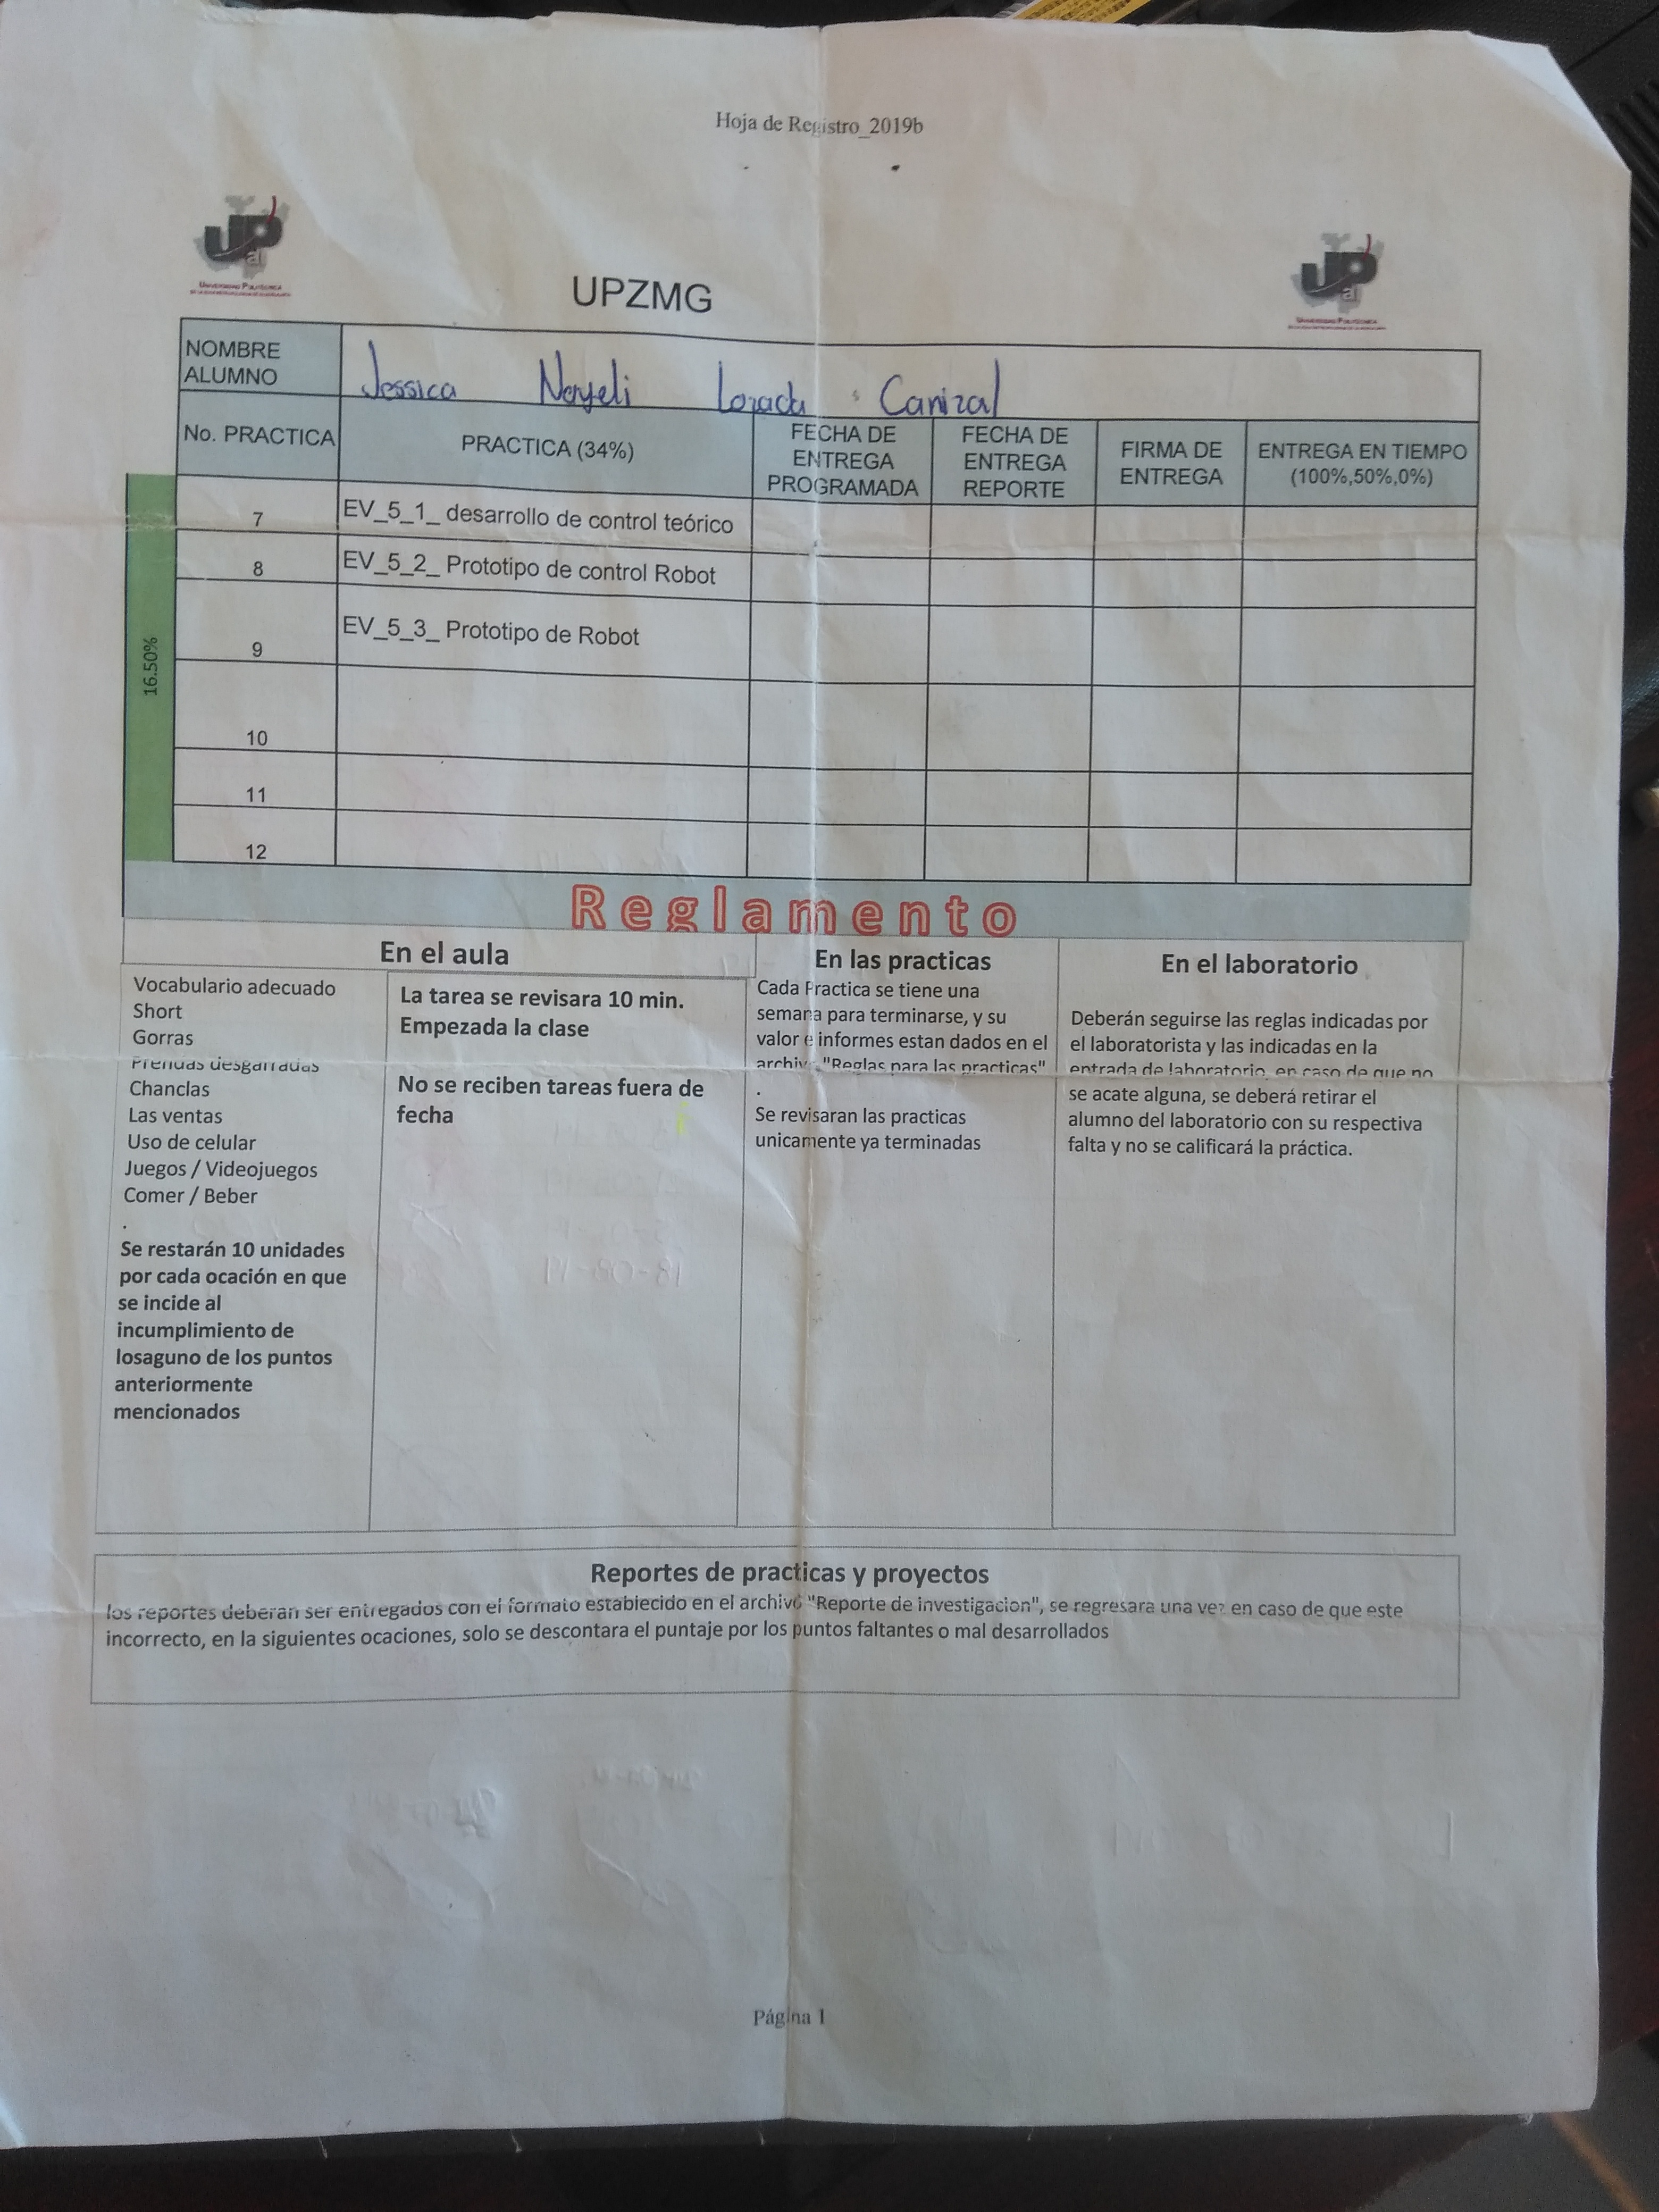 Hoja de Registro_2019b
UNIVERSIDAD POLITÉCNICA
UNIVERSIDAD POLITÉCNICA
UPZMG
NOMBRE
ALUMNO
Jessica Nayeli Lozada Canizal
No. PRACTICA
PRACTICA (34%)
FECHA DE
ENTREGA
PROGRAMADA
FECHA DE
ENTREGA
REPORTE
FIRMA DE
ENTREGA
ENTREGA EN TIEMPO
(100%,50%,0%)
16.50%
7 EV_5_1_ desarrollo de control teórico
8 EV_5_2_ Prototipo de control Robot
9 EV_5_3_ Prototipo de Robot
10
11
12
Reglamento
En el aula
Vocabulario adecuado
Short
Gorras
Prendas desgarradas
Chanclas
Las ventas
Uso de celular
Juegos / Videojuegos
Comer / Beber
.
Se restarán 10 unidades
por cada ocación en que
se incide al
incumplimiento de
losaguno de los puntos
anteriormente
mencionados
La tarea se revisara 10 min.
Empezada la clase
No se reciben tareas fuera de
fecha
En las practicas
Cada Practica se tiene una
semana para terminarse, y su
valor e informes estan dados en el
archivo "Reglas para las practicas"
.
Se revisaran las practicas
unicamente ya terminadas
En el laboratorio
Deberán seguirse las reglas indicadas por
el laboratorista y las indicadas en la
entrada de laboratorio, en caso de que no
se acate alguna, se deberá retirar el
alumno del laboratorio con su respectiva
falta y no se calificará la práctica.
Reportes de practicas y proyectos
los reportes deberan ser entregados con el formato establecido en el archivo "Reporte de investigacion", se regresara una vez en caso de que este
incorrecto, en la siguientes ocaciones, solo se descontara el puntaje por los puntos faltantes o mal desarrollados
Página 1